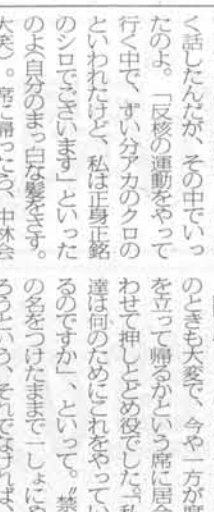 く話したんだが、その中でいっ
たのよ。「反核の運動をやって
行く中で、ずい分アカのクロの
といわれたけど、私は正身正銘
のシロでございます」といった
のよ（自分のまっ白な髪をさす。
大笑）。席に帰ったら、中林会
のときも大変で、今や一方が席
を立って帰るかという席に居合
わせて押しとどめ役でした。「私
達は何のためにこれをやってい
るのですか」、といって。〝禁
の名をつけたままで一しょにや
ろうという、それでなければ、